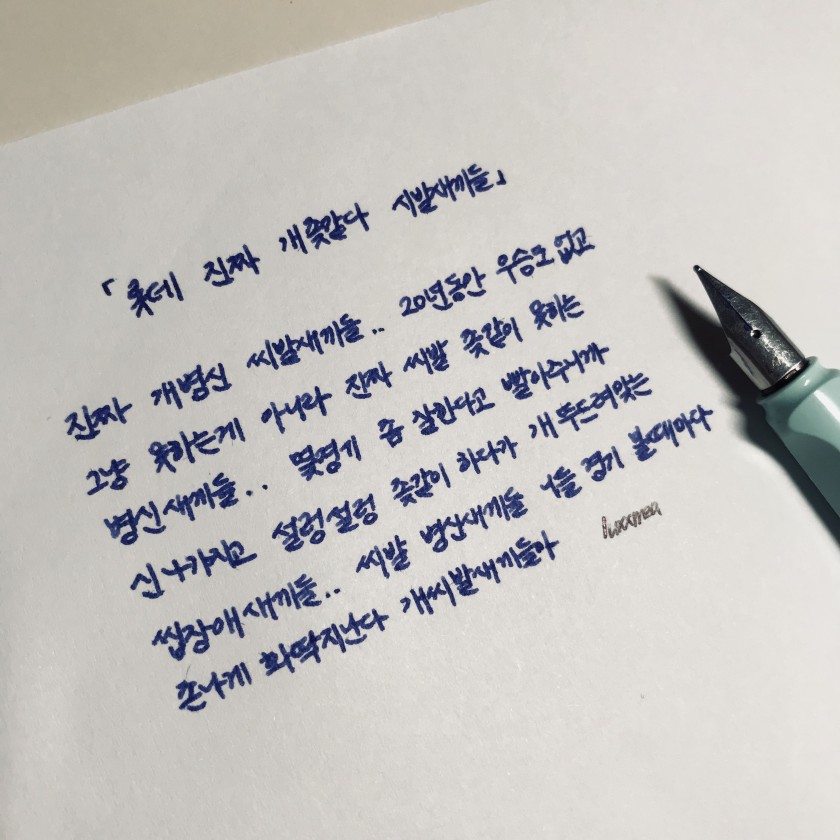 「롯데 진짜 개좆같다 시발새끼들」
진짜 개병신 씨발새끼들.. 20년동안 우승도 없고
그냥 못하는게 아니라 진짜 씨발 좆같이 못하는
병신새끼들.. 몇명기 좀 살린다고 빨아주니까
신나가지고 설렁설렁 좆같이 하다가 개뚜드려맞는
씹장애새끼들.. 씨발 병신새끼들 너들 경기 볼때마다
존나게 화딱지난다 개씨발새끼들아